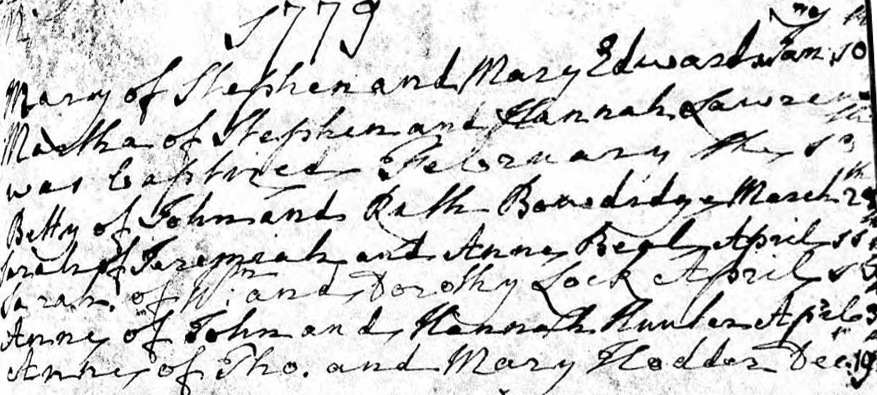 1779
Mary of Stephen and Mary Edwards Jan:ry 10th
Martha of Stephen and Hannah Lawren
was baptized February the 13th
Betty of John and Ruth Bowdidge March 29th
Sarah of Jeremiah and Anne Beal April 11th
Sarah of Wm: and Dorothy Lock April
Anne of John and Hannah April
Anne of Tho. and Mary Hodder Dec:m 19